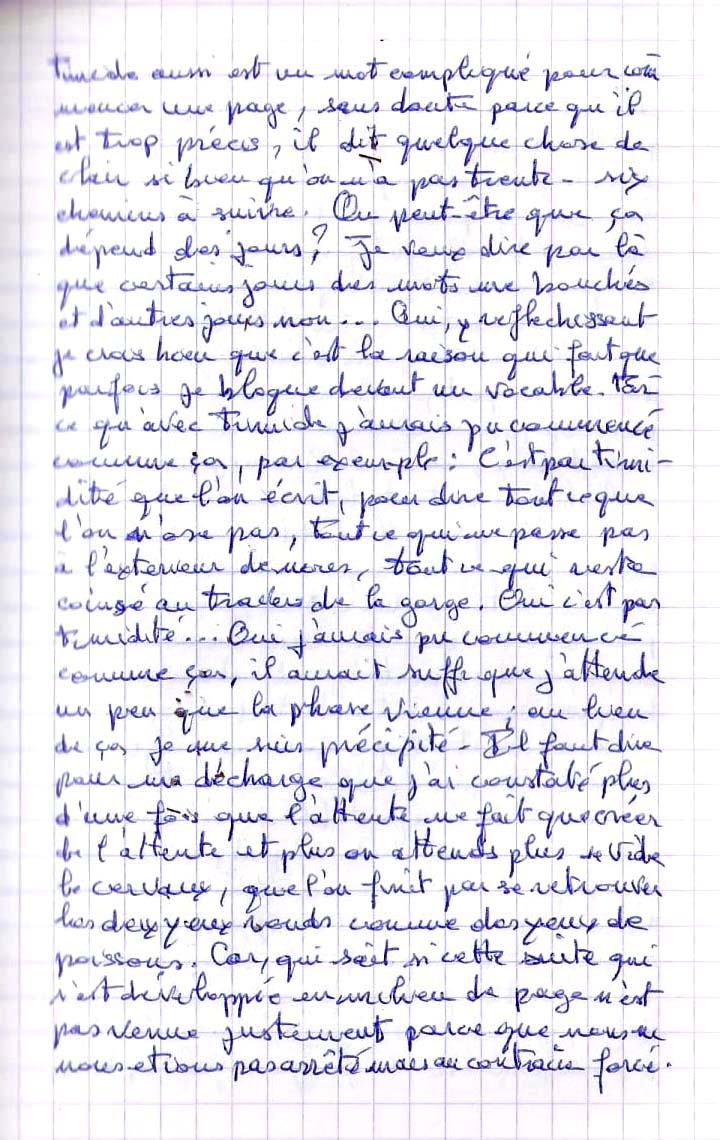 Timide aussi est un mot compliqué pour com
mencer une page, sans doute parce qu'il
est trop précis, il dit quelque chose de
clair si bien qu'on n'a pas trente-six
chemins à suivre. Ou peut-être que ça
dépend des jours ? Je veux dire par là
que certains jours des mots me bouchés
et d'autres jours non... Oui, y reflechissant
je crois bien que c'est la raison qui fait que
parfois je bloque devant un vocable. Par
ce qu'avec timide j'aurais pu commencé
comme ça, par exemple : C'est par timi-
dité que l'on écrit, pour dire tout ce que
l'on n'ose pas, tout ce qui ne passe pas
à l'exterieur de nous, tout ce qui reste
coinsé au travers de la gorge. Oui c'est par
timidité... Oui j'aurais pu commencé
comme ça, il aurait suffi que j'attende
un peu que la phrase vienne ; au lieu
de ça je me suis précipité - Il faut dire
pour ma décharge que j'ai constaté plus
d'une fois que l'attente ne fait que créer
de l'attente et plus on attends plus se vide
le cerveau, que l'on finit par se retrouver
les deux yeux ronds comme des yeux de
poissons. Car, qui sait si cette suite qui
s'est développée en milieu de page n'est
pas venue justement parce que nous ne
nous etions pas arrêté mais au contraire forcé.